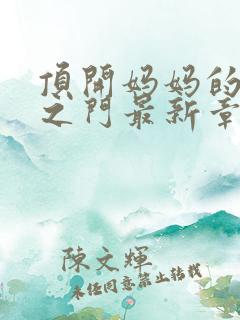 頂開妈妈的
之门最新章
陳文輝
未经同意禁止转载